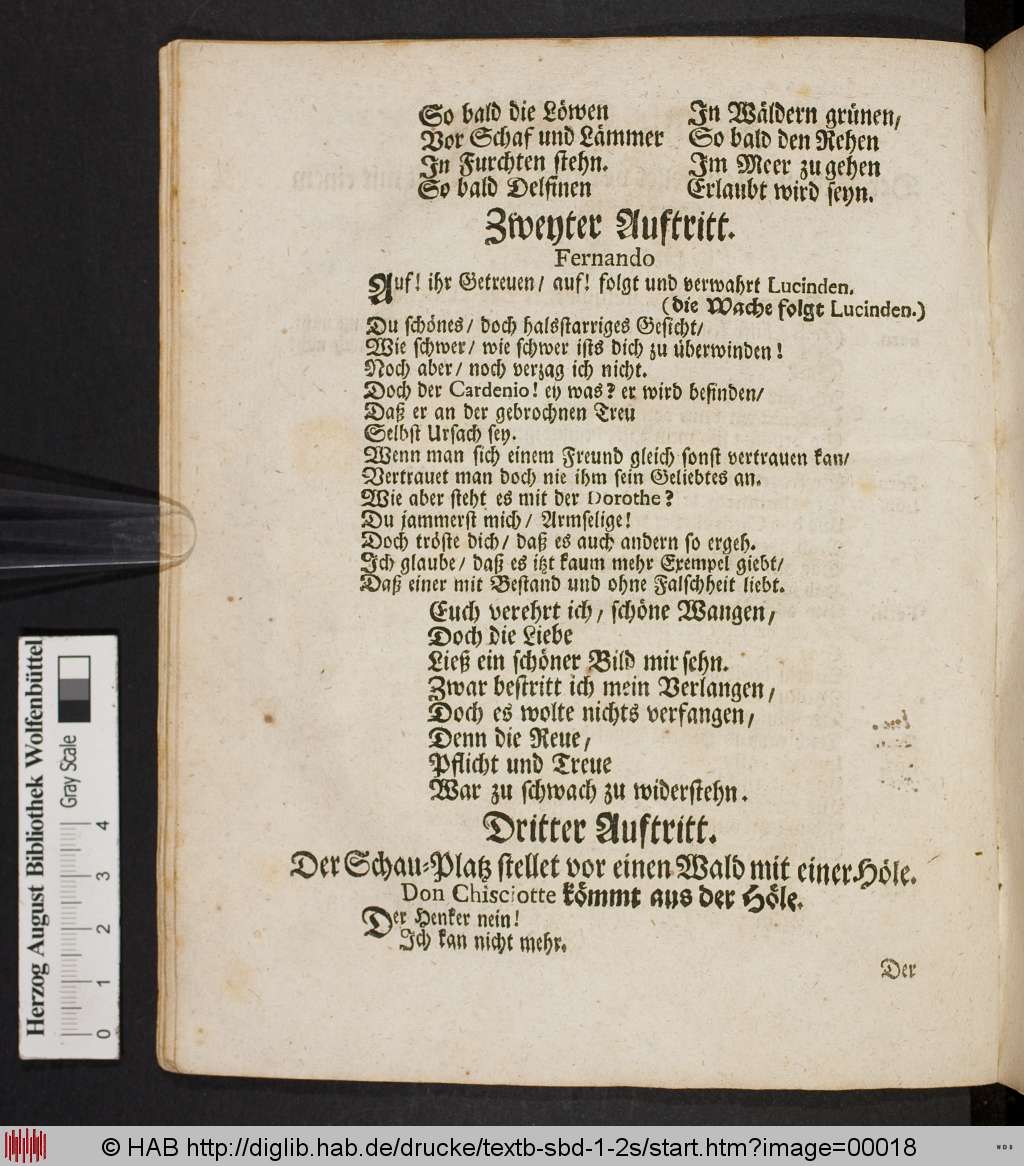 So bald die Löwen
Vor Schaf und Lämmer
In Furchten stehn.
So bald Delfinen
In Wäldern grünen,
So bald den Rehen
Im Meer zu gehen
Erlaubt wird seyn.
Zweyter Auftritt.
Fernando
Auf! ihr Getreuen/ auf! folgt und verwahrt Lucinden.
(die Wache folgt Lucinden.)
Du schönes/ doch halsstarriges Gesicht/
Wie schwer/ wie schwer ists dich zu überwinden!
Noch aber/ noch verzag ich nicht.
Doch der Cardenio! ey was? er wird befinden/
Daß er an der gebrochnen Treu
Selbst Ursach sey.
Wenn man sich einem Freund gleich sonst vertrauen kan/
Vertrauet man doch nie ihm sein Geliebtes an.
Wie aber steht es mit der Dorothe?
Du jammerst mich/ Armselige!
Doch tröste dich/ daß es auch andern so ergeh.
Ich glaube/ daß es itzt kaum mehr Exempel giebt/
Daß einer mit Bestand und ohne Falschheit liebt.
Euch verehrt ich, schöne Wangen,
Doch die Liebe
Ließ ein schöner Bild mir sehn.
Zwar bestritt ich mein Verlangen,
Doch es wolte nichts verfangen,
Denn die Reue,
Pflicht und Treue
War zu schwach zu widerstehn.
Dritter Auftritt.
Der Schau-Platz stellet vor einen Wald mit einer Höle.
Don Chisciotte kömmt aus der Höle.
Der Henker nein!
Ich kan nicht mehr.
Der
Herzog August Bibliothek Wolfenbüttel
Gray Scale
0 1 2 3 4
© HAB http://diglib.hab.de/drucke/textb-sbd-1-2s/start.htm?image=00018